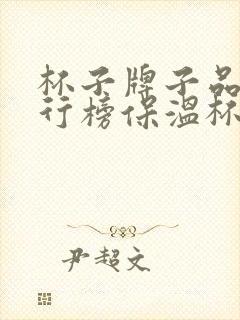 杯子牌子品
行榜保温杯
尹超文